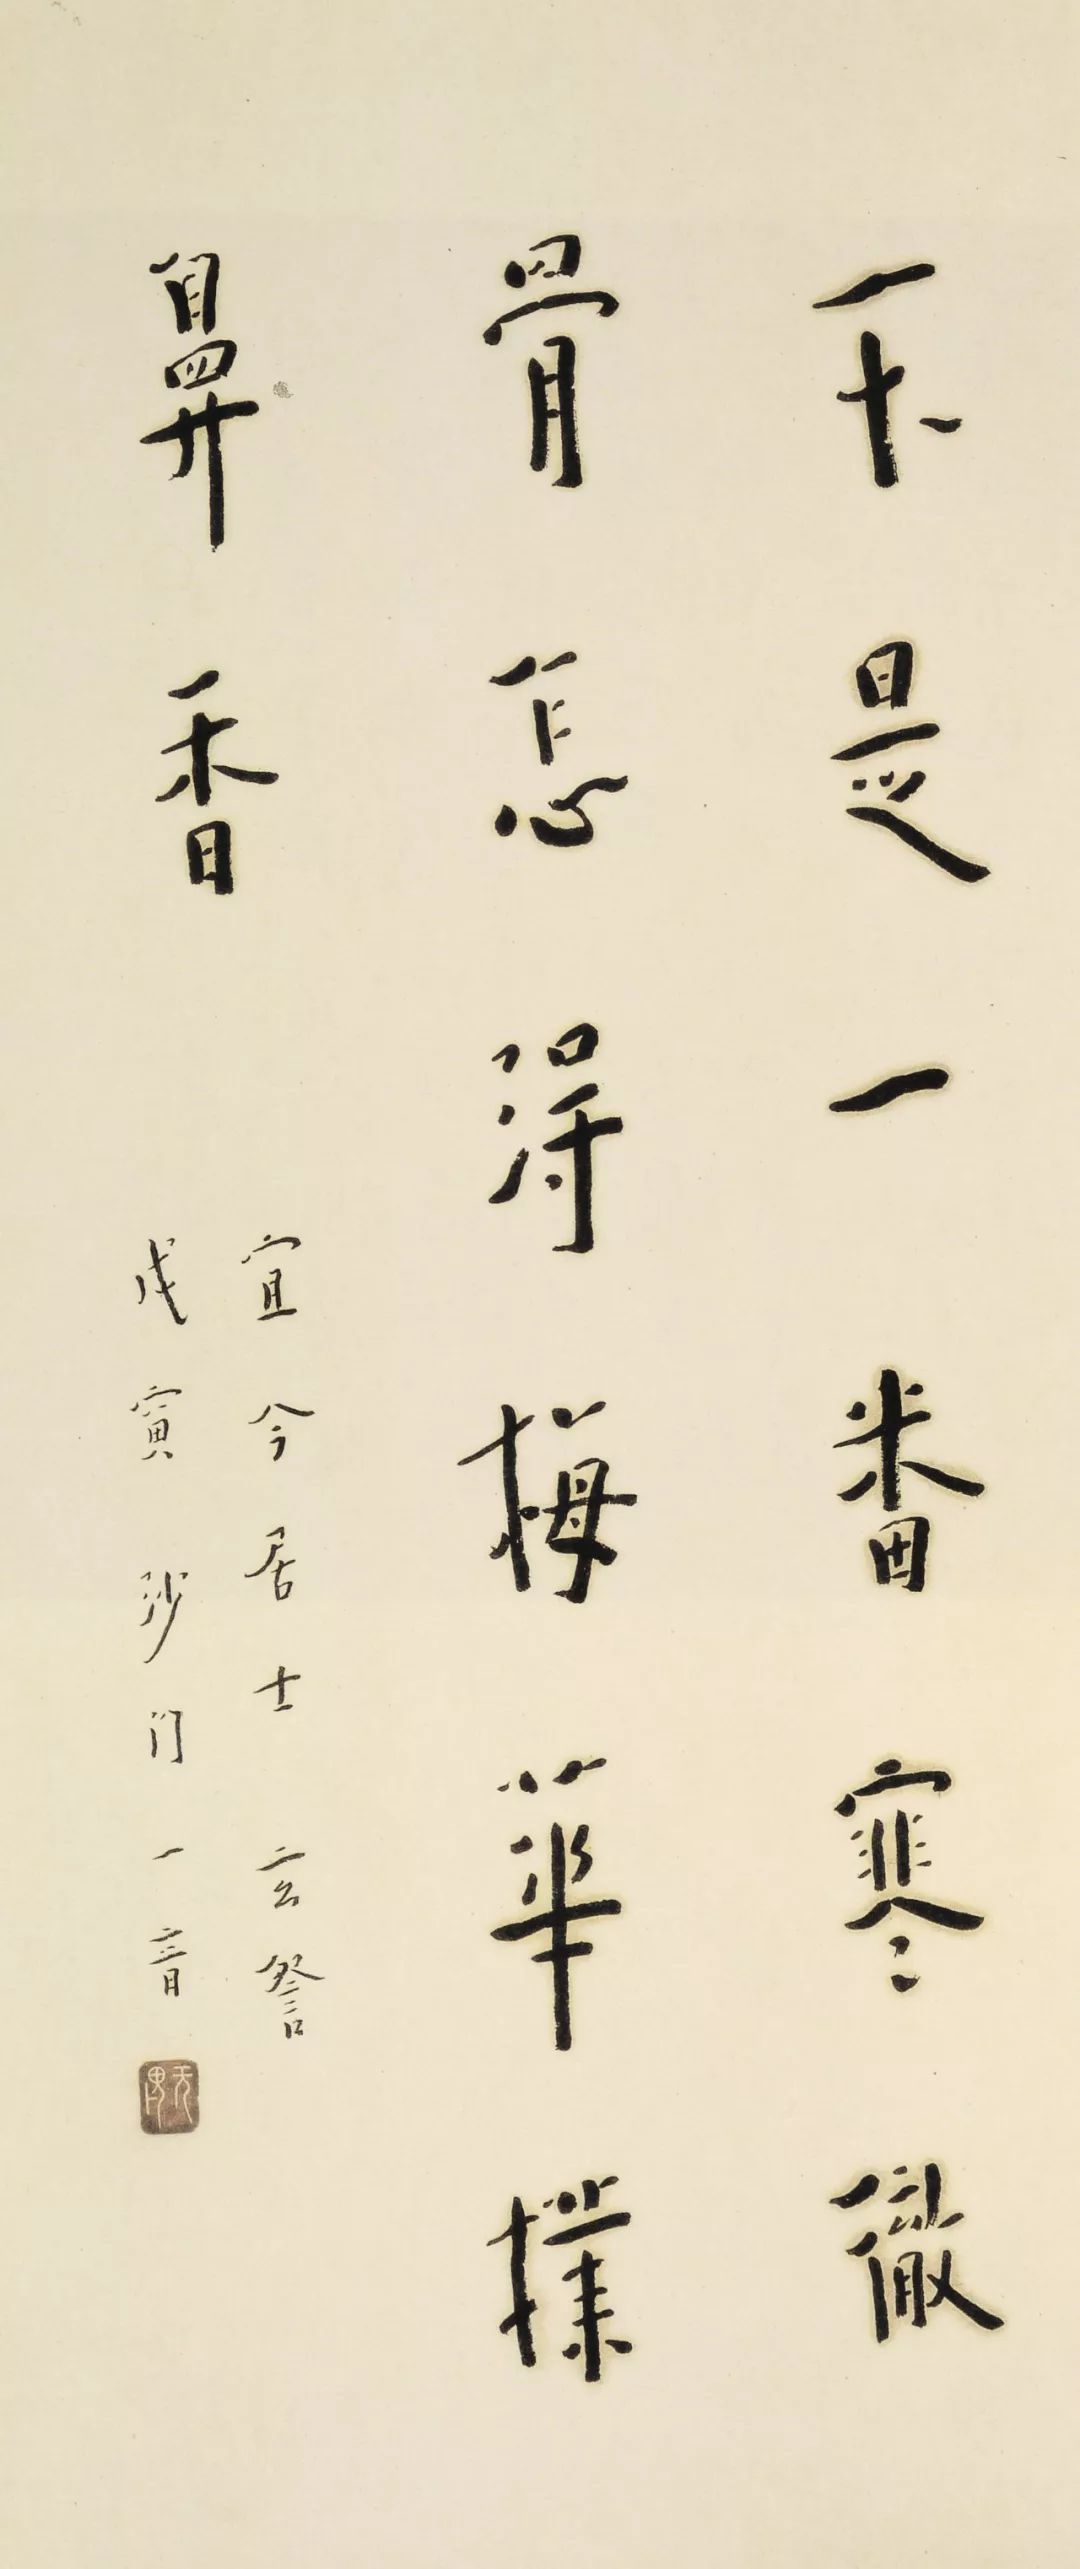 不是一番寒徹
骨怎得梅華撲
鼻香
宜今居士 玄詧
戊寅沙门一音